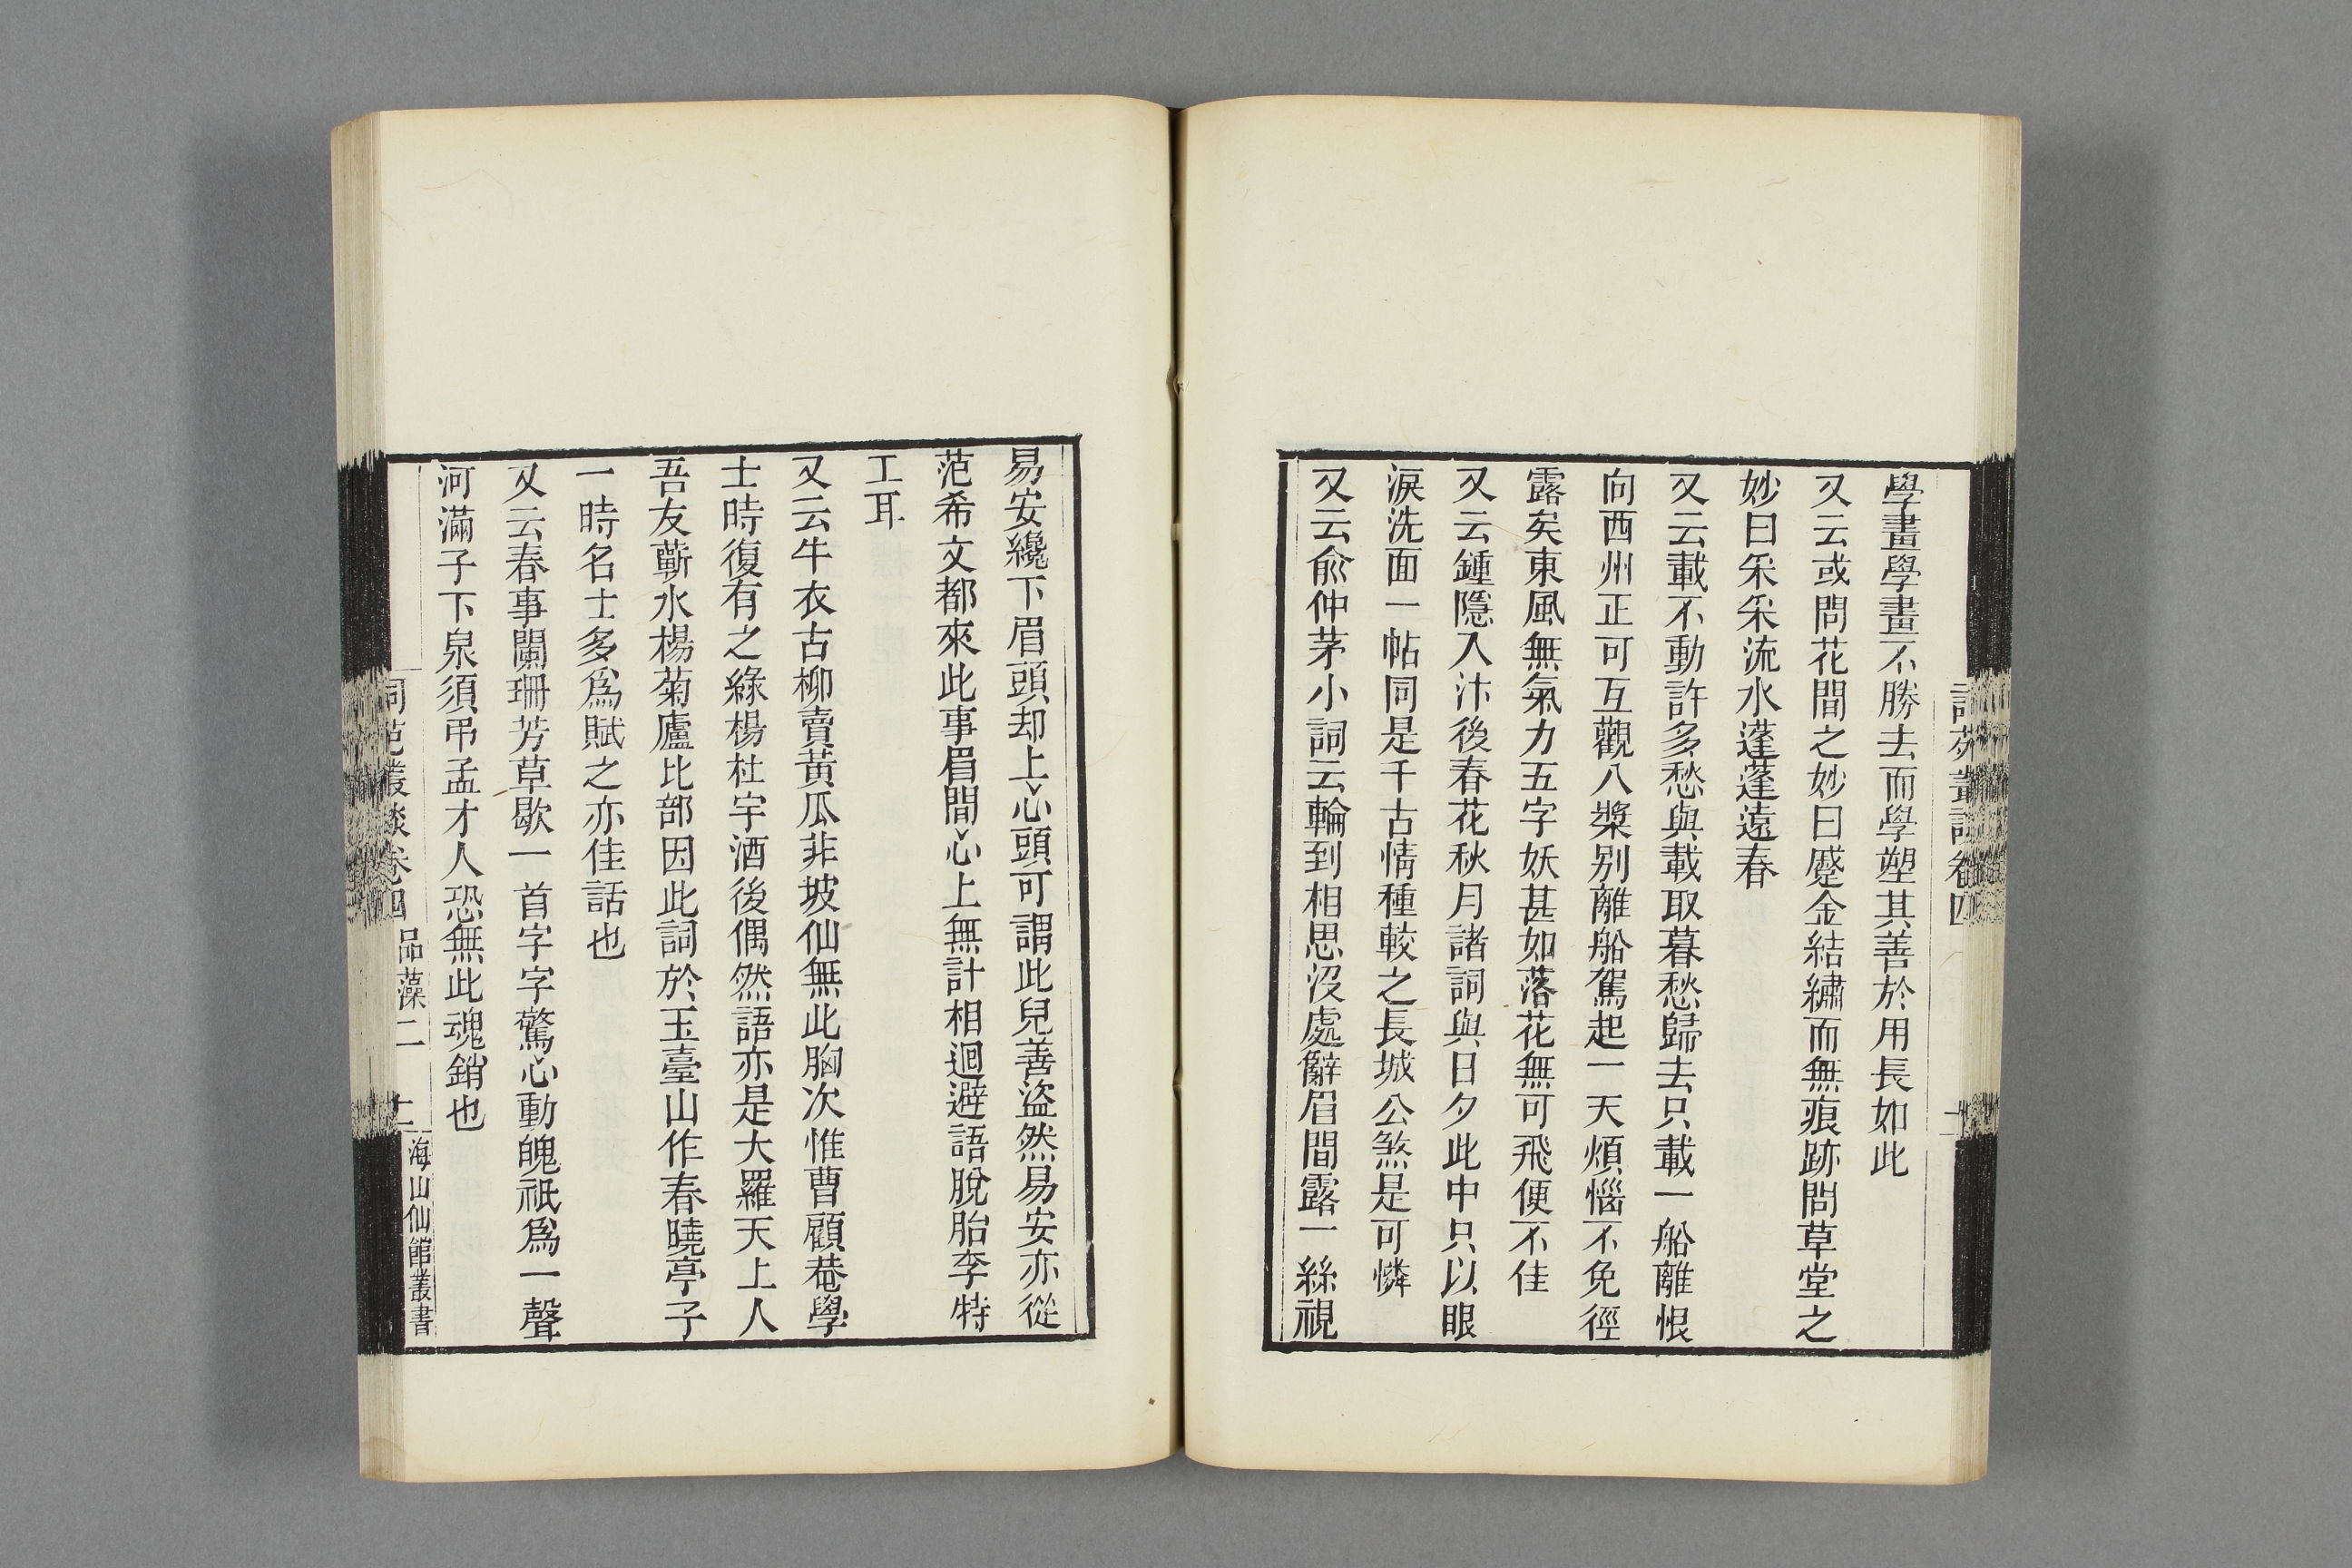 學畫學畫不勝去而學塑其善於用長如此
又云或問花間之妙曰蹙金結繡而無痕跡問草堂之
妙曰采采流水蓬蓬遠春
又云載不動許多愁與載取暮愁歸去只載一船離恨
向西州正可互觀八槳别離船駕起一天煩惱不免徑
露矣東風無氣力五字妖甚如落花無可飛便不佳
又云鍾隱入汴後春花秋月諸詞與日夕此中只以眼
淚洗面一帖同是千古情種較之長城公煞是可憐
又云俞仲茅小詞云輪到相思沒處辭眉間露一絲視
易安纔下眉頭却上心頭可謂此兒善盜然易安亦從
范希文都來此事眉間心上無計相迴避語脫胎李特
工耳
又云牛衣古柳賣黃瓜非坡仙無此胸次惟曹顧菴學
士時復有之綠楊杜宇酒後偶然語亦是大羅天上人
吾友蘄水楊菊廬比部因此詞於玉臺山作春曉亭子
一時名士多爲賦之亦佳話也
又云春事闌珊芳草歇一首字字驚心動魄祇爲一聲
河滿子下泉須弔孟才人恐無此魂銷也
詞苑叢談卷四 品藻二 十二 海山仙館叢書